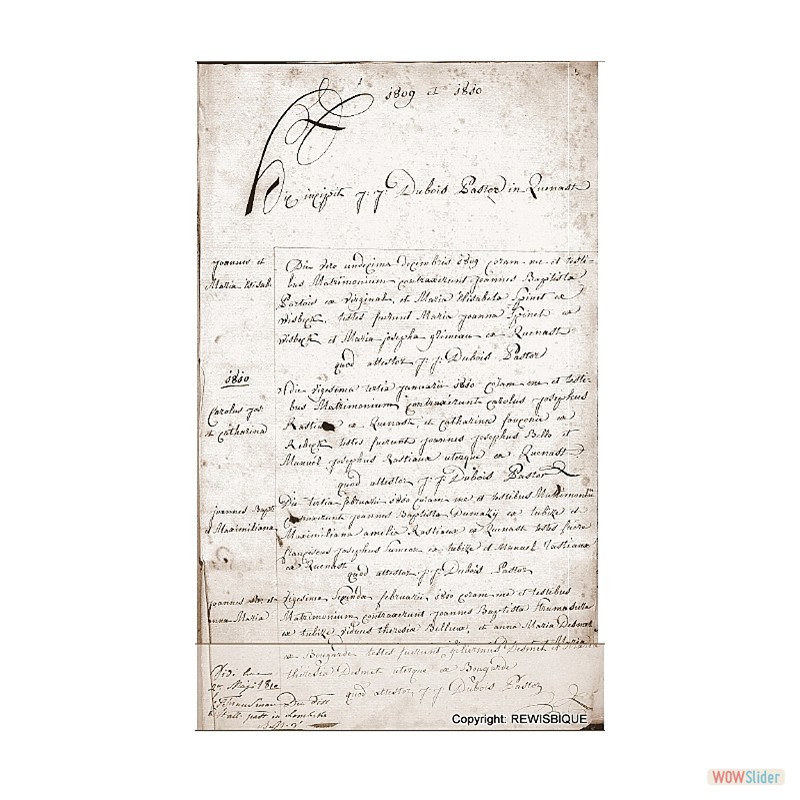 1809 et 1810
Hic incipit J. J. Dubois Pastor in Quenast
joannes et
Maria Elisab.
Die vero undecima decembris 1809 coram me et testi-
bus Matrimonium contraxerunt joannes Baptista
ex Virginal, et Maria Elisabeta Spinet ex
Wisbeck, testes fuerunt Maria joanna Spinet ex
Wisbeck et Maria josepha ex Quenast
quod attestor j. j. Dubois Pastor
1810
Carolus jos.
et Catharina
die vigesima tertia januarii 1810 coram me et testi-
bus Matrimonium contraxerunt carolus josephus
ex Quenast, et catharina ex
Rebeck testes fuerunt joannes josephus Bello et
Manuel josephus Rastiaux uterque ex Quenast
quod attestor j. j. Dubois Pastor
joannes Bapt.
et Maximiliana
Die tertia februarii 1810 coram me et testibus Matrimonium
contraxerunt joannes Baptista ex tubize et
Maximiliana amelia Rastiaux ex Quenast testes fuere
franciscus josephus ex tubize et Manuel Rastiaux
ex Quenast
quod attestor j. j. Dubois Pastor
joannes et
anna Maria
vigesima februarii 1810 coram me et testibus
Matrimonium contraxerunt joannes Baptista
ex tubize viduus theresia et anna Maria Desmet
ex Bougarde testes fuerunt Desmet et Maria
theresia Desmet uterque ex Bougarde
quod attestor j. j. Dubois Pastor
1810
Copyright: REWISBIQUE
WOWSlider